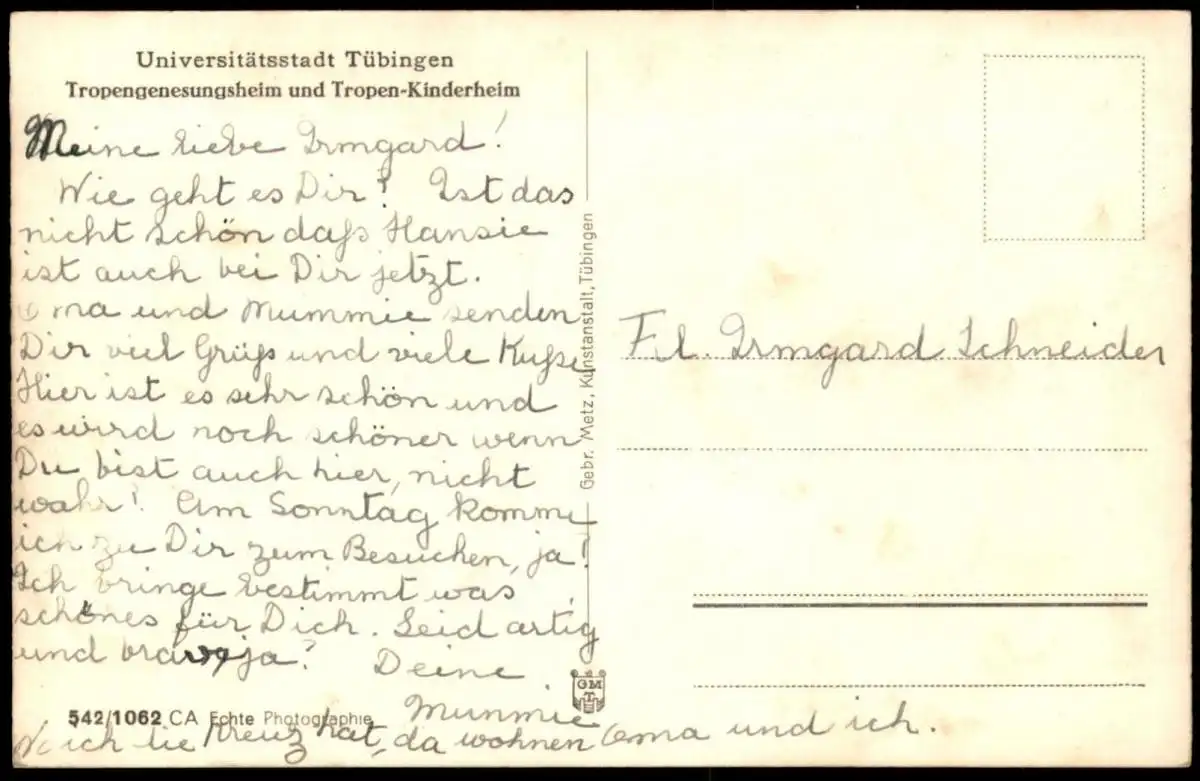 Universitätsstadt Tübingen
Tropengenesungsheim und Tropen-Kinderheim
Meine liebe Irmgard!
Wie geht es Dir? Ist das
nicht schön daß Hansie
ist auch bei Dir jetzt.
Oma und Mummie senden
Dir viel Grüß und viele Kuße
Hier ist es sehr schön und
es wird noch schöner wenn
Du bist auch hier, nicht
wahr! Am Sonntag komme
ich zu Dir zum Besuchen, ja!
Ich bringe bestimmt was
schönes für Dich. Seid artig
und brav ja? Deine
Mummie
542/1062 CA Echte Photographie
Wo ich die Kreuz hat, da wohnen Oma und ich.
Gebr. Metz, Kunstanstalt, Tübingen
GMT
Frl. Irmgard Schneider